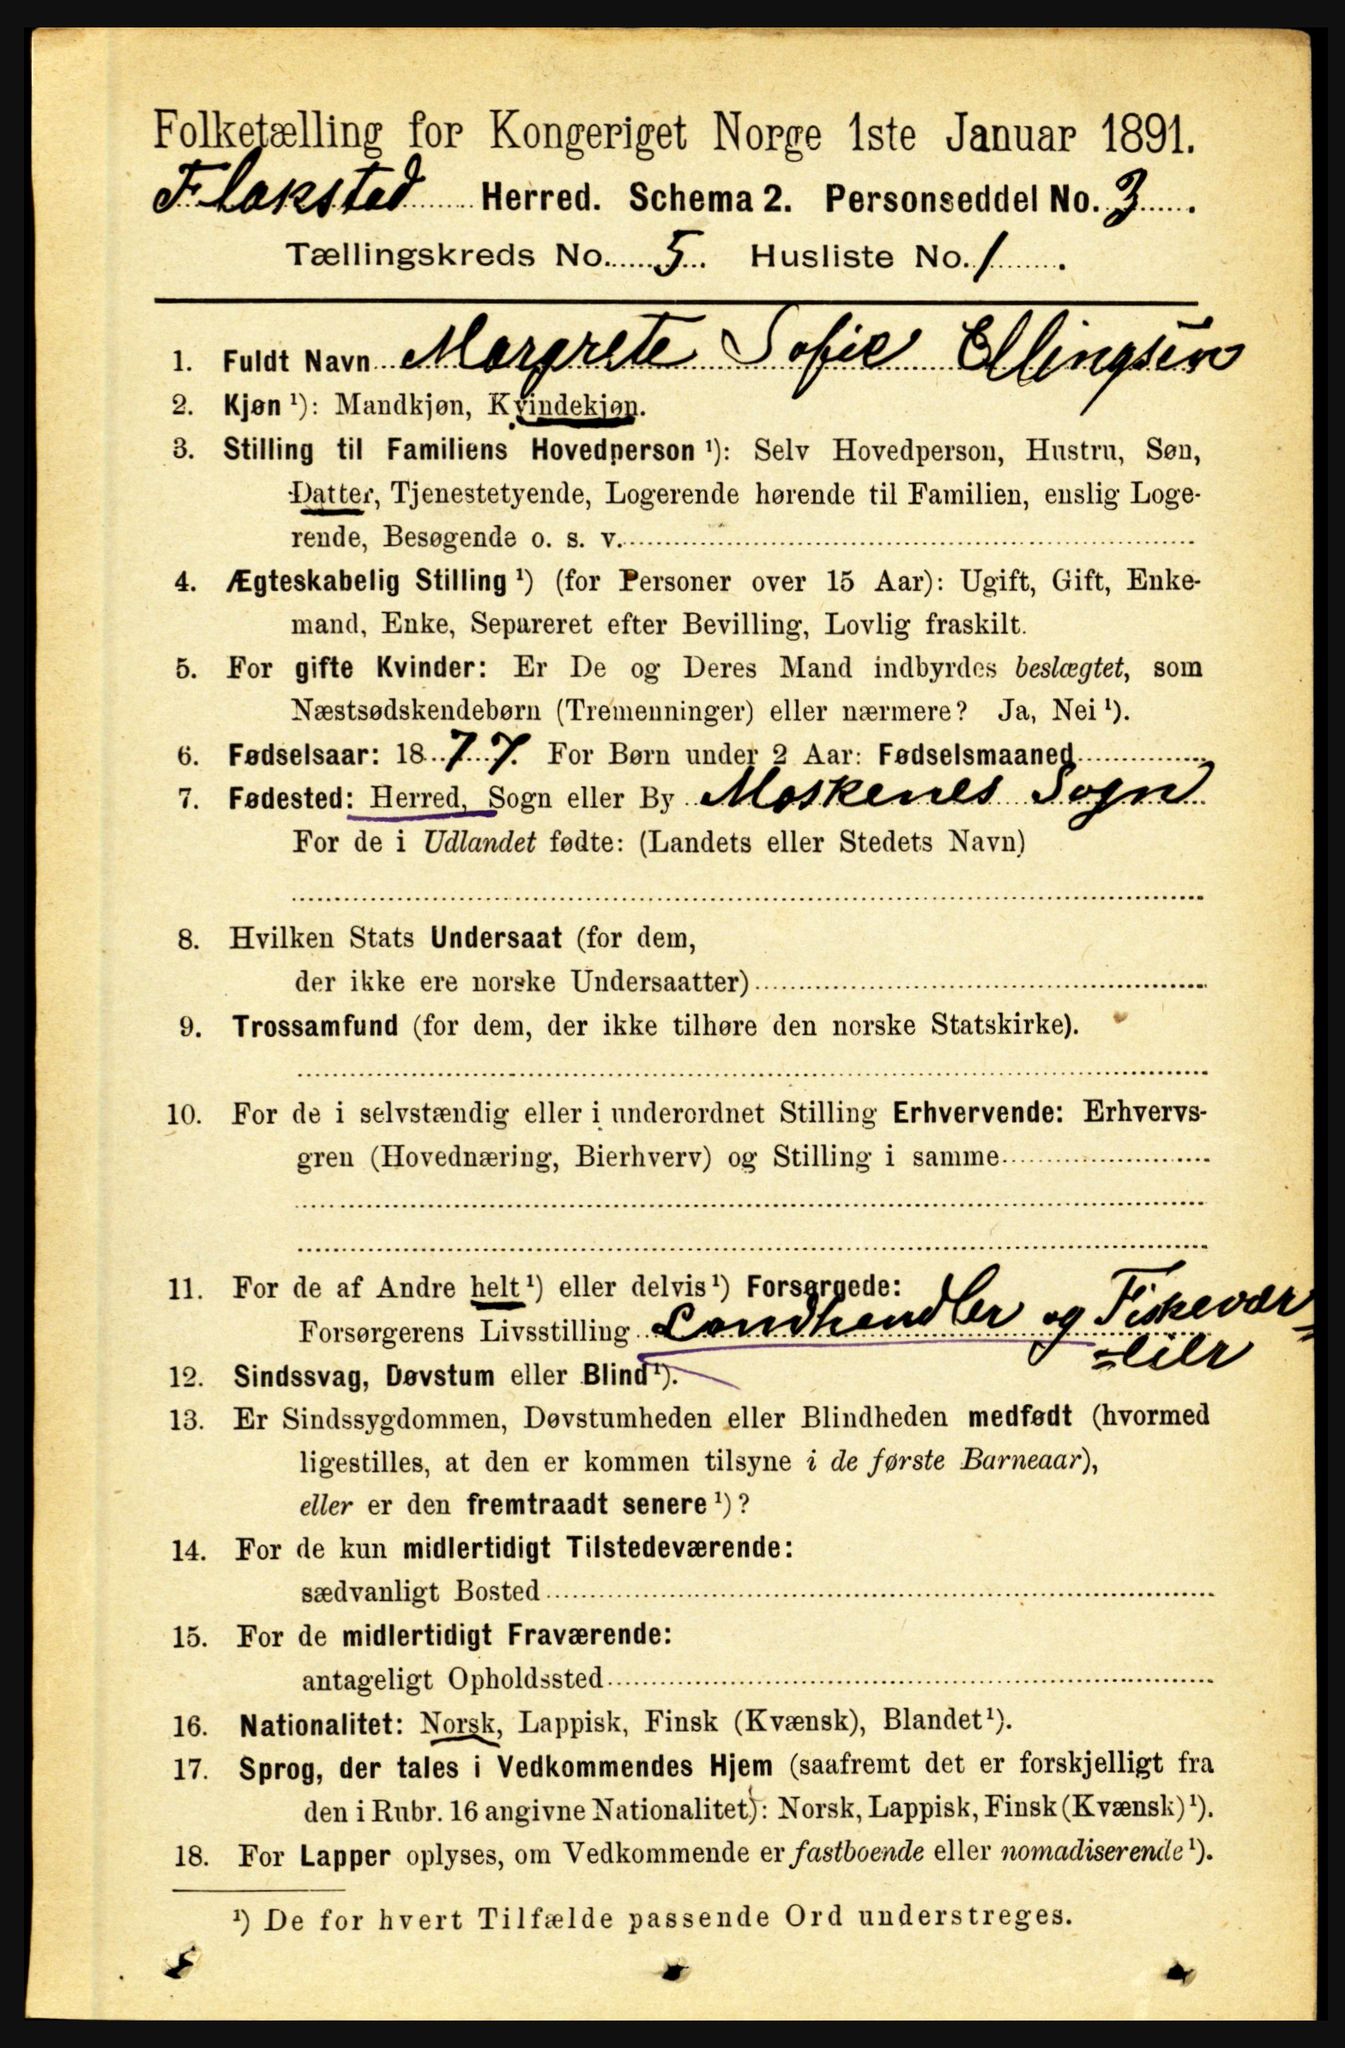 Folketælling for Kongeriget Norge 1ste Januar 1891.
Flaksted Herred. Schema 2. Personseddel No. 3.
Tællingskreds No. 5. Husliste No. 1.
1. Fuldt Navn Margrete Sofie Ellingsen
2. Kjøn ¹): Mandkjøn, Kvindekjøn.
3. Stilling til Familiens Hovedperson ¹): Selv Hovedperson, Hustru, Søn,
Datter, Tjenestetyende, Logerende hørende til Familien, enslig Loge-
rende, Besøgende o. s. v.
4. Ægteskabelig Stilling ¹) (for Personer over 15 Aar): Ugift, Gift, Enke-
mand, Enke, Separeret efter Bevilling, Lovlig fraskilt.
5. For gifte Kvinder: Er De og Deres Mand indbyrdes beslægtet, som
Næstsødskendebørn (Tremenninger) eller nærmere? Ja, Nei ¹).
6. Fødselsaar: 1877. For Børn under 2 Aar: Fødselsmaaned
7. Fødested: Herred, Sogn eller By Moskenes Sogn
For de i Udlandet fødte: (Landets eller Stedets Navn)
8. Hvilken Stats Undersaat (for dem,
der ikke ere norske Undersaatter)
9. Trossamfund (for dem, der ikke tilhøre den norske Statskirke).
10. For de i selvstændig eller i underordnet Stilling Erhvervende: Erhvervs-
gren (Hovednæring, Bierhverv) og Stilling i samme
11. For de af Andre helt ¹) eller delvis ¹) Forsørgede:
Forsørgerens Livsstilling Landhandler og Fiskevær=
=eier
12. Sindssvag, Døvstum eller Blind ¹).
13. Er Sindssygdommen, Døvstumheden eller Blindheden medfødt (hvormed
ligestilles, at den er kommen tilsyne i de første Barneaar),
eller er den fremtraadt senere ¹)?
14. For de kun midlertidigt Tilstedeværende:
sædvanligt Bosted
15. For de midlertidigt Fraværende:
antageligt Opholdssted
16. Nationalitet: Norsk, Lappisk, Finsk (Kvænsk), Blandet ¹).
17. Sprog, der tales i Vedkommendes Hjem (saafremt det er forskjelligt fra
den i Rubr. 16 angivne Nationalitet): Norsk, Lappisk, Finsk (Kvænsk) ¹).
18. For Lapper oplyses, om Vedkommende er fastboende eller nomadiserende ¹).
¹) De for hvert Tilfælde passende Ord understreges.